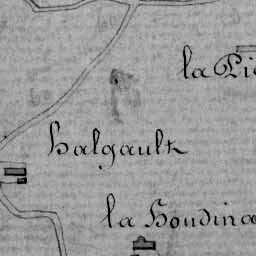 la Pi
halgault
la houdina